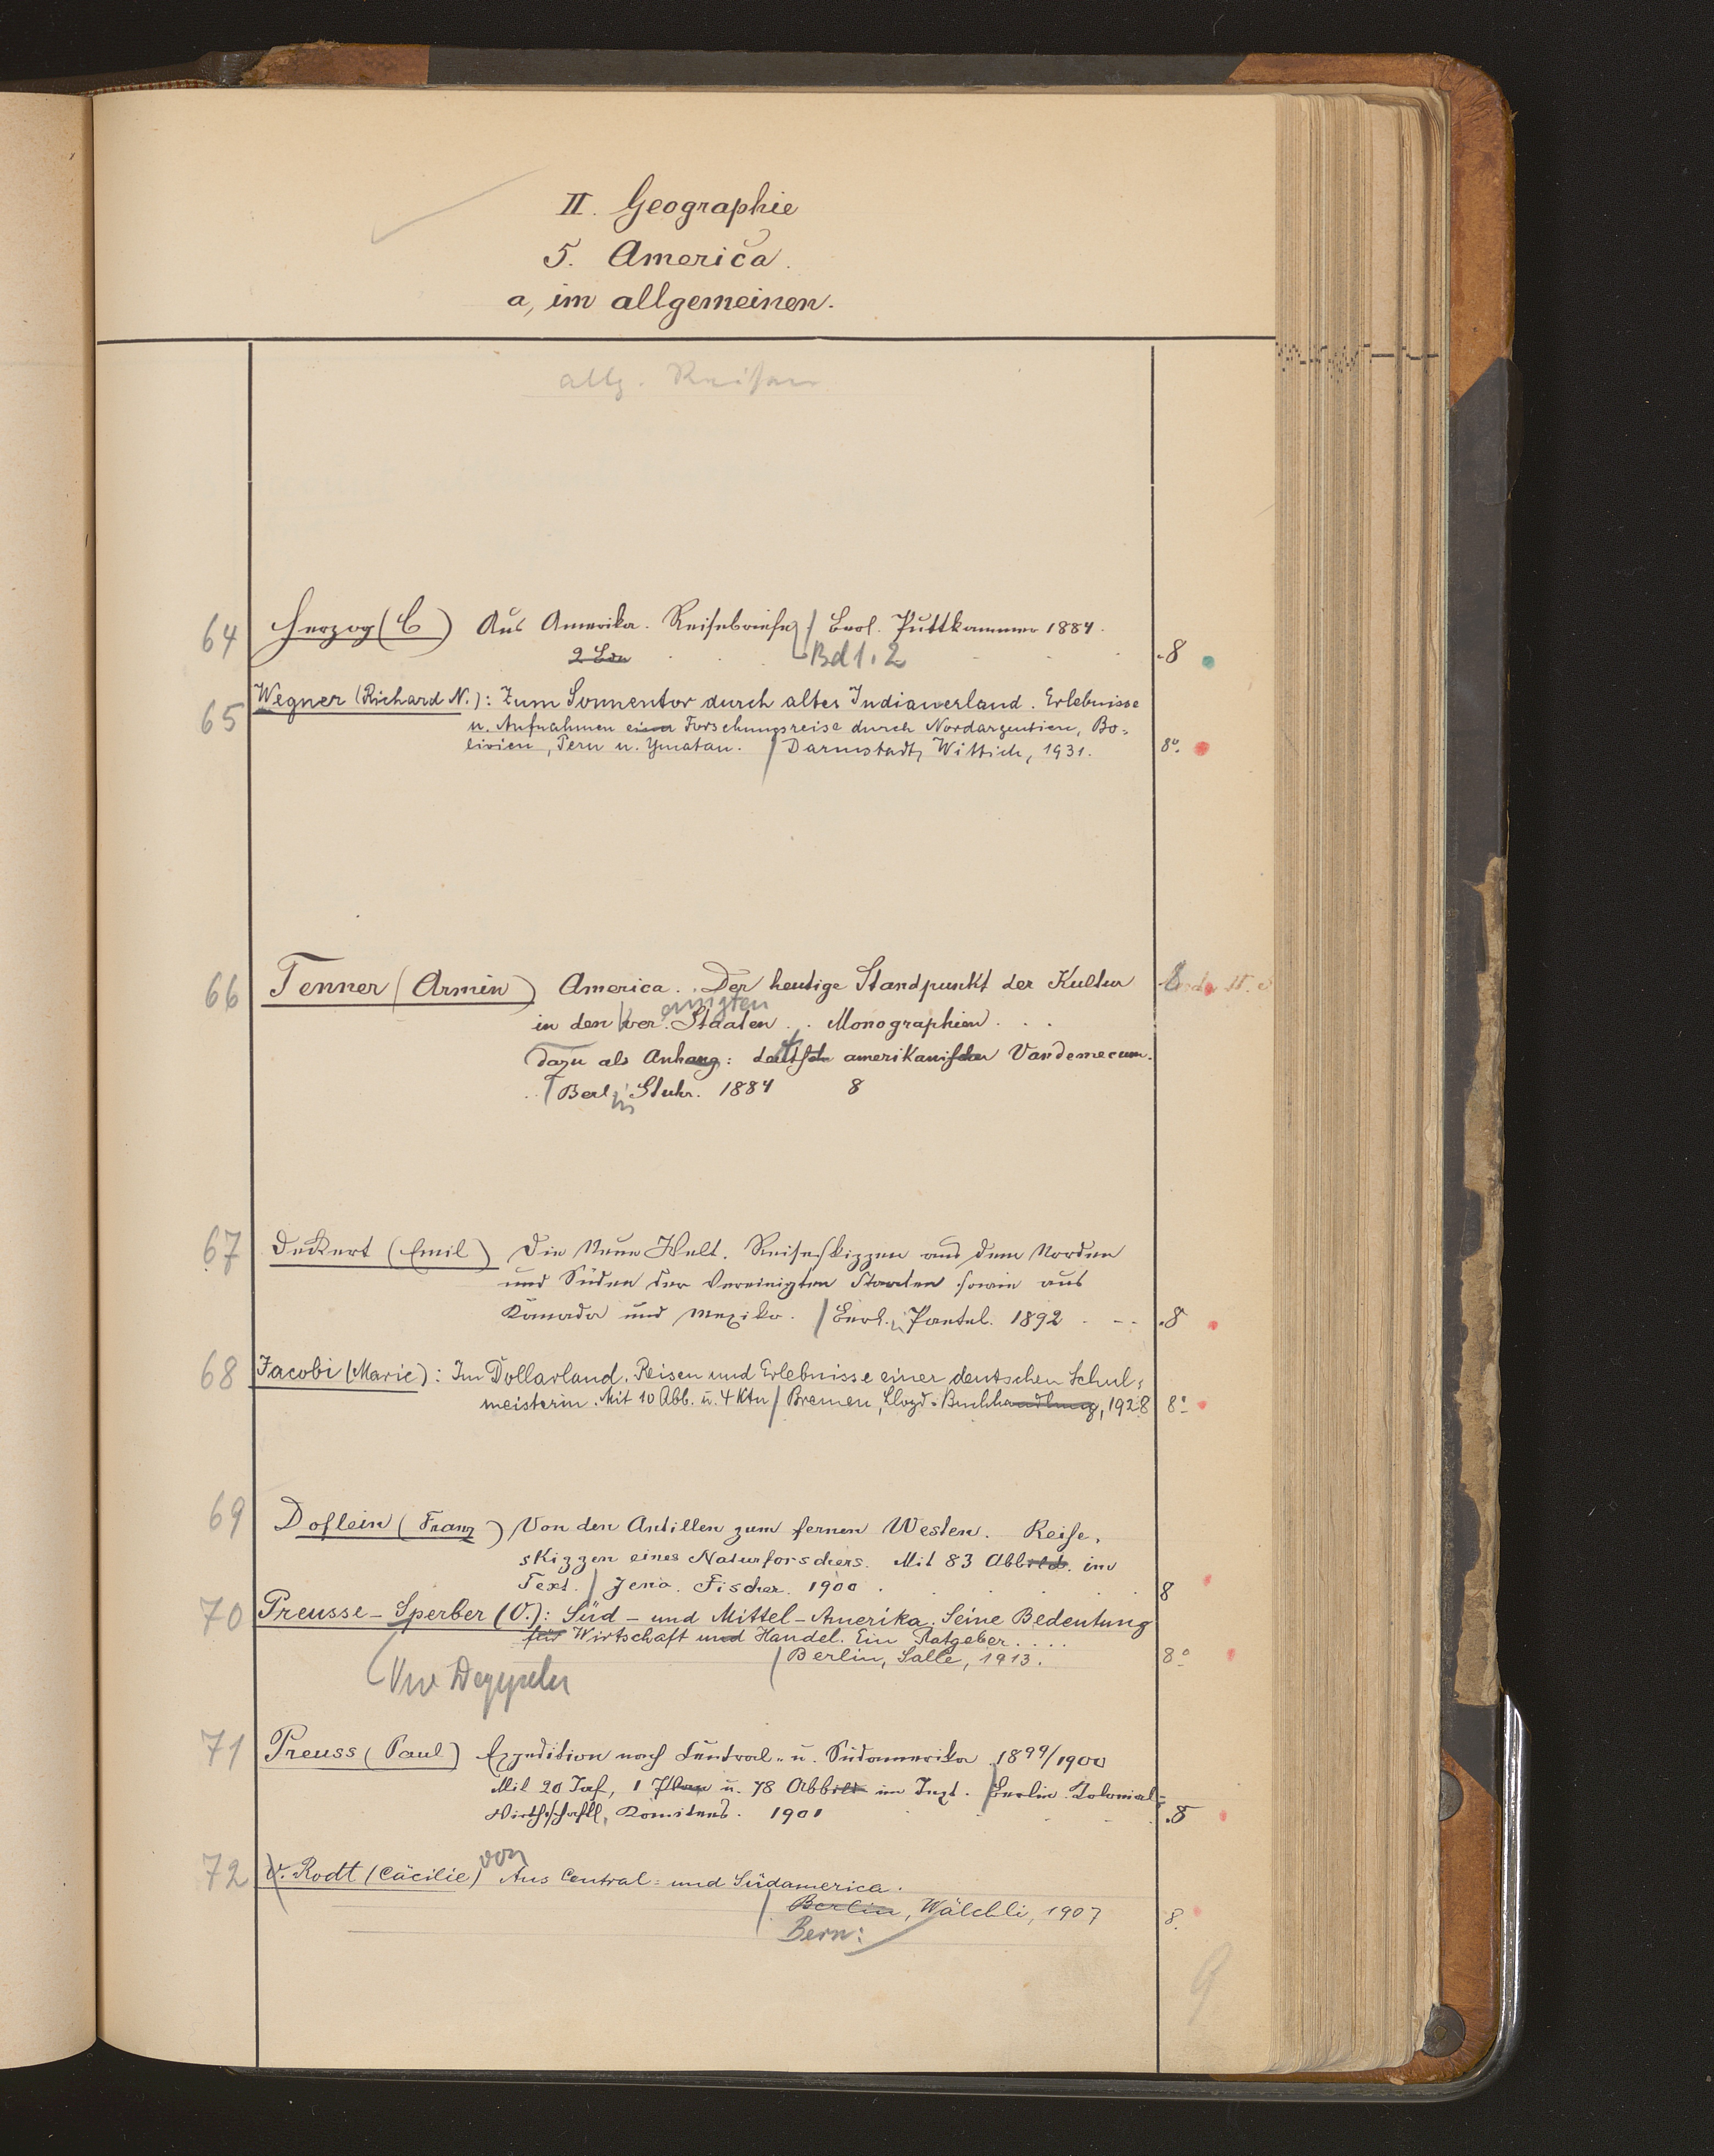 II. Geographie
5. America.
a, im allgemeinen.
allg. Reisen
64 Herzog (C) Aus Amerika. Reisebriefe / Berl. Puttkammer 1884.
2 Bde Bd 1. 2 8
65 Wegner (Richard N.): Zum Sonnentor durch altes Indianerland. Erlebnisse
u. Aufnahmen einer Forschungsreise durch Nordargentien, Bo-
livien, Peru u. Yucatan. / Darmstadt, Wittich, 1931. 8°.
66 Tenner (Armin) America. . Der heutige Standpunkt der Kultur 8
in den ver. einigten Staaten . . Monographien . . .
Dazu als Anhang: deutsch amerikanischer Vandemecum.
. . / Berl: Stuhr. 1884 8
67 Deckert (Emil) Die Neue Welt. Reiseskizzen aus dem Norden
und Süden der Vereinigten Staaten sowie aus
Kanada und Mexiko. / Berl. Paetel. 1892 - -- 8
68 Jacobi (Marie): Im Dollarland. Reisen und Erlebnisse einer deutschen Schul-
meisterin. Mit 10 Abb. u. 4 Ktn / Bremen, Lloyd-Buchhandlung, 1928 8°
69 Doflein (Franz) Von den Antillen zum fernen Westen. Reise-
skizzen eines Naturforschers. Mit 83 Abbild. im
Text. / Jena. Fischer. 1900 . 8
70 Preusse-Sperber (O.): Süd- und Mittel-Amerika. Seine Bedeutung
für Wirtschaft und Handel. Ein Ratgeber . . . .
/ Berlin, Salle, 1913. 8°
71 Preuss (Paul) Expedition nach Central- u. Südamerika 1899/1900
Mit 20 Taf, 1 Plan u. 78 Abbild im Text. / Berlin Kolonial-
Wirthschaftl. Komitees. 1901 8
72 v. Rodt (Cäcilie) von Aus Central- und Südamerica.
/ Berlin, Wälchli, 1907 8.
Bern:
9